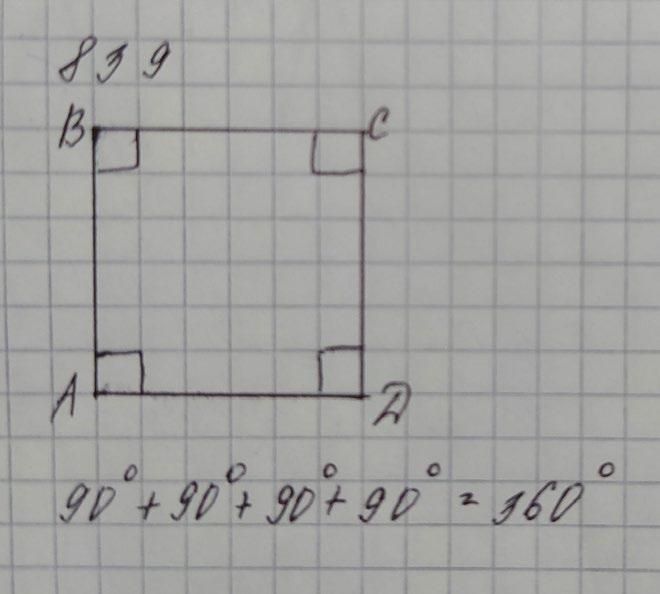 839
B C
A D
90° + 90° + 90° + 90° = 360°